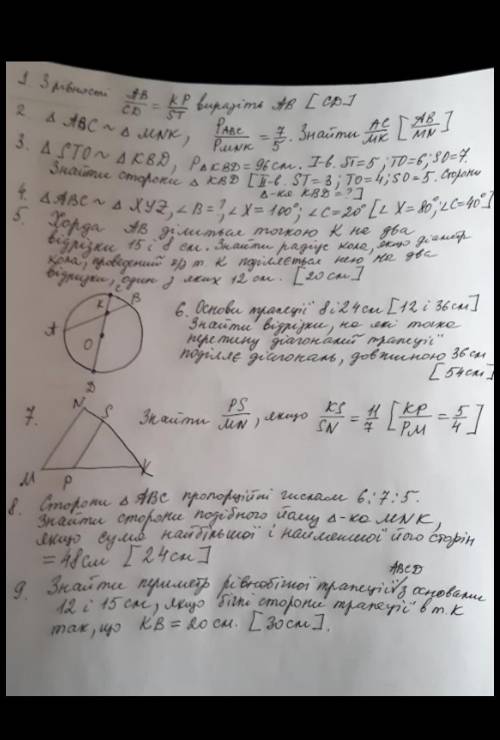 1. З рівності AB/CD = KP/ST виразіть AB [CD]
2. Δ ABC ~ Δ MNK, P_ABC/P_MNK = 7/5. Знайти AC/MK [AB/MN]
3. Δ STO ~ Δ KBD, P_ΔKBD = 96 см. I-в. ST=5; TO=6; SO=7.
Знайти сторони Δ KBD [II-в. ST=3; TO=4; SO=5. Сторони
Δ-ка KBD = ?]
4. Δ ABC ~ Δ XYZ, ∠B=?, ∠X=100°; ∠C=20° [∠X=80°, ∠C=40°]
5. Хорда AB ділиться точкою K на два
відрізки 15 і 8 см. Знайти радіус кола, якщо діаметр
кола, проведений ч/з т. K поділяється нею на два
відрізки, один з яких 12 см. [20 см]
C
K B
A
O
D
6. Основи трапеції 8 і 24 см [12 і 36 см]
Знайти відрізки, на які точка
перетину діагоналей трапеції
поділяє діагональ, довжиною 36 см
[54 см]
7. Знайти PS/MN, якщо KS/SN = 11/7 [KP/PM = 5/4]
N S
M P K
8. Сторони Δ ABC пропорційні числам 6:7:5.
Знайти сторони подібного йому Δ-ка MNK,
якщо сума найбільшої і найменшої його сторін
= 48 см [24 см]
ABCD
9. Знайти периметр рівнобічної трапеції з основами
12 і 15 см, якщо бічні сторони трапеції в т. K
так, що KB = 20 см. [30 см].